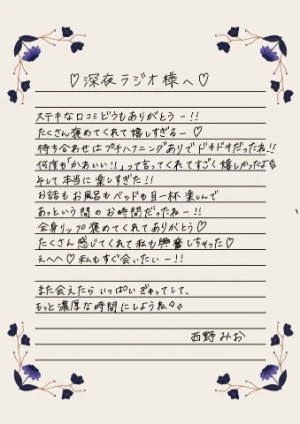 ♡深夜ラジオ様へ♡
ステキな口コミどうもありがとうー!!
たくさん褒めてくれて嬉しすぎるー♡
待ち合わせはプチハプニングありでドキドキだったね!!
何度も「かわいい!!」って言ってくれてすごく嬉しかったよ
そして本当に楽しすぎた!!
お話もお風呂もベッドも目一杯楽しんで
あっという間のお時間だったねー!!
全身リップ褒めてくれてありがとう♡
たくさん感じてくれて私も興奮しちゃった♡
えへへ♡私もすぐ会いたいー!!
また会えたらいっぱいぎゅってして、
もっと濃厚な時間にしようね
西野みお